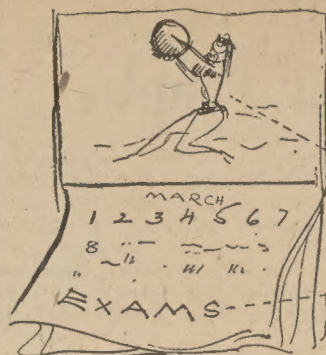 MARCH
1 2 3 4 5 6 7
8
EXAMS